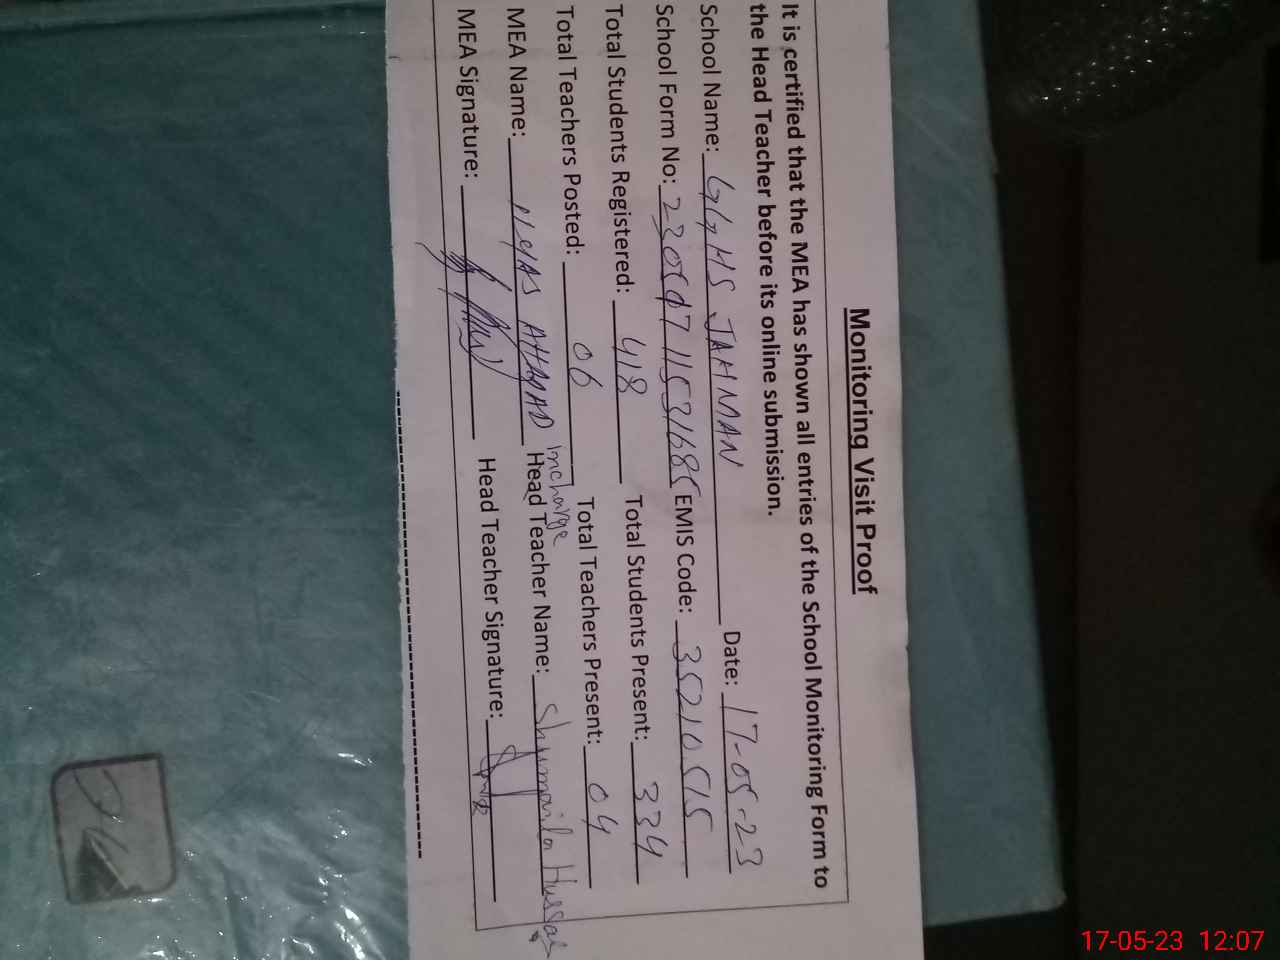 Monitoring Visit Proof
It is certified that the MEA has shown all entries of the School Monitoring Form to
the Head Teacher before its online submission.
School Name: GGHS JAHMAN Date: 17-05-23
School Form No: EMIS Code: 35210515
Total Students Registered: 418 Total Students Present: 334
Total Teachers Posted: 06 Total Teachers Present: 04
Incharge
MEA Name: ILYAS AHMAD Head Teacher Name: Shumaila Hussain
MEA Signature: Head Teacher Signature:
17-05-23 12:07